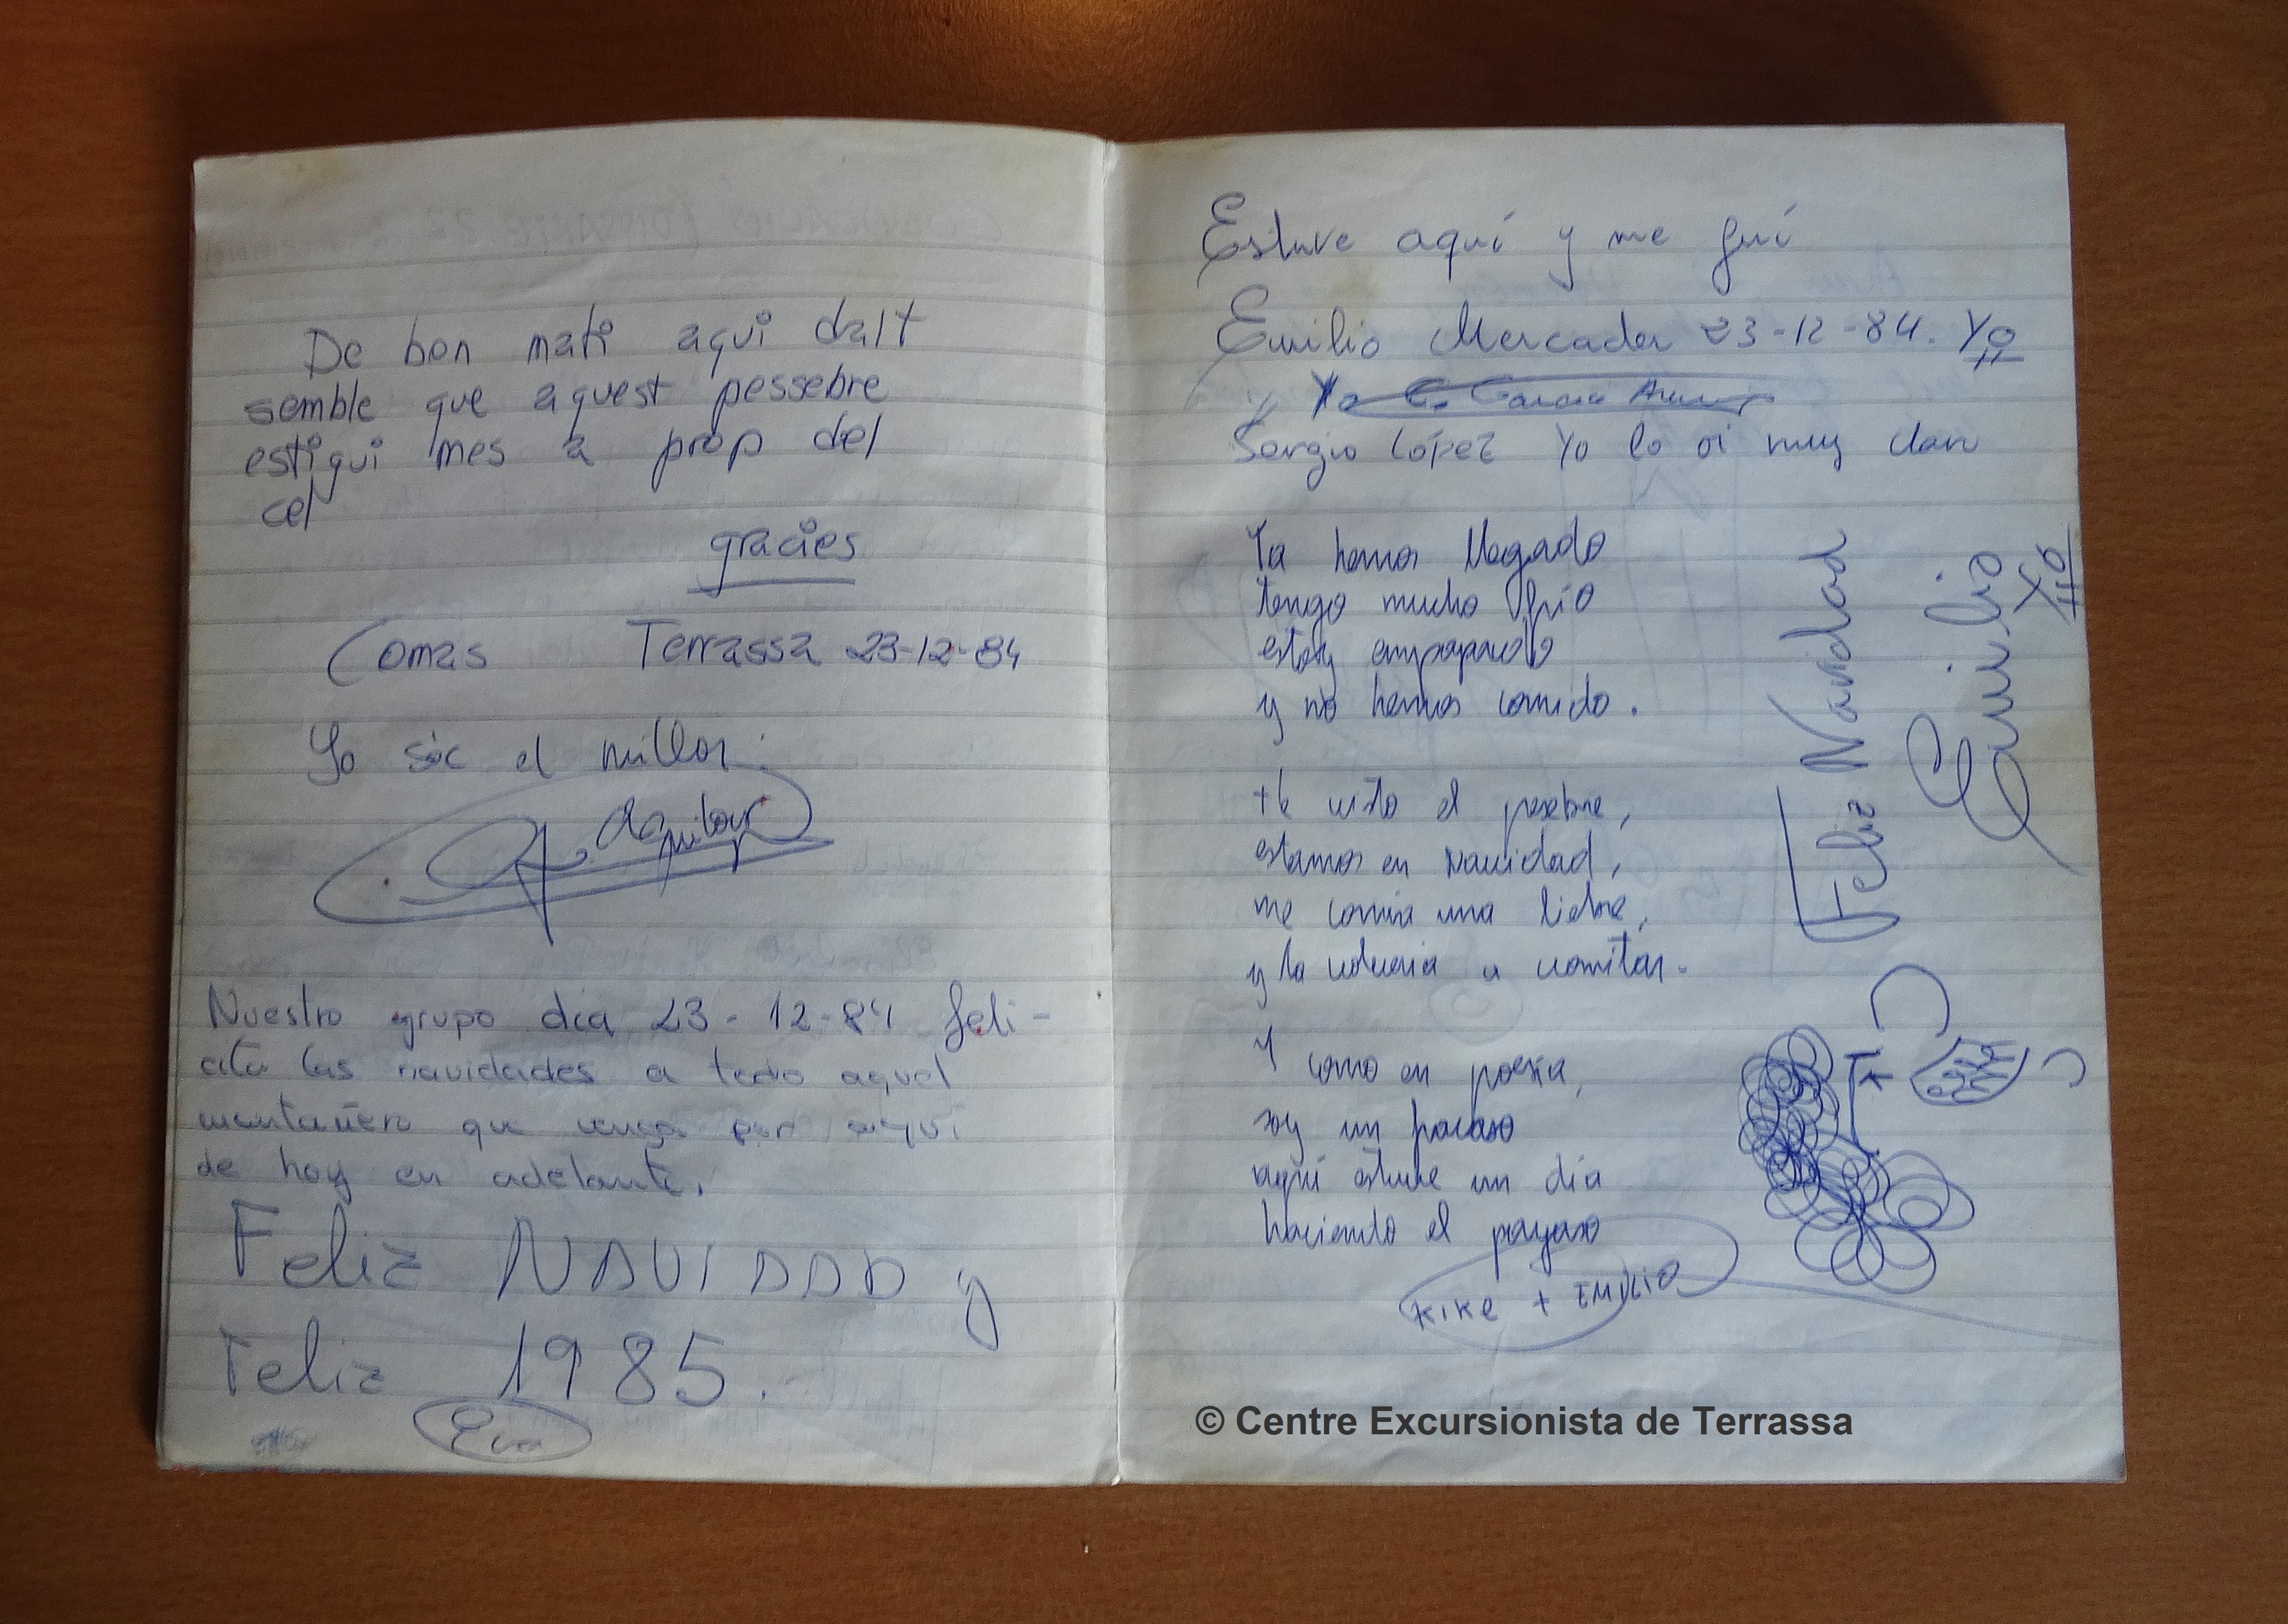 De bon mati aqui dalt
semble que aquest pessebre
estigui mes a prop del
cel
gracies
Comas Terrassa 23-12-84
Yo sóc el millor.
Aguilar
Nuestro grupo dia 23-12-84 feli-
cita las navidades a todo aquel
montañero que venga por aqui
de hoy en adelante.
Feliz NAVIDAD y
Feliz 1985.
Eva
Estuve aquí y me fuí
Emilio Mercader 23-12-84. Yo
Yo E. Garcia
Sergio López Yo lo oi muy claro
Ya hemos llegado
tengo mucho frío
estoy empapado
y no hemos comido.
He visto el pesebre,
estamos en Navidad,
me comia una liebre,
y la volveria a vomitar.
Y como en poesia,
soy un fracaso
aquí estuve un día
haciendo el payaso
KIKE + EMILIO
Feliz Navidad
Emilio
Yo
© Centre Excursionista de Terrassa